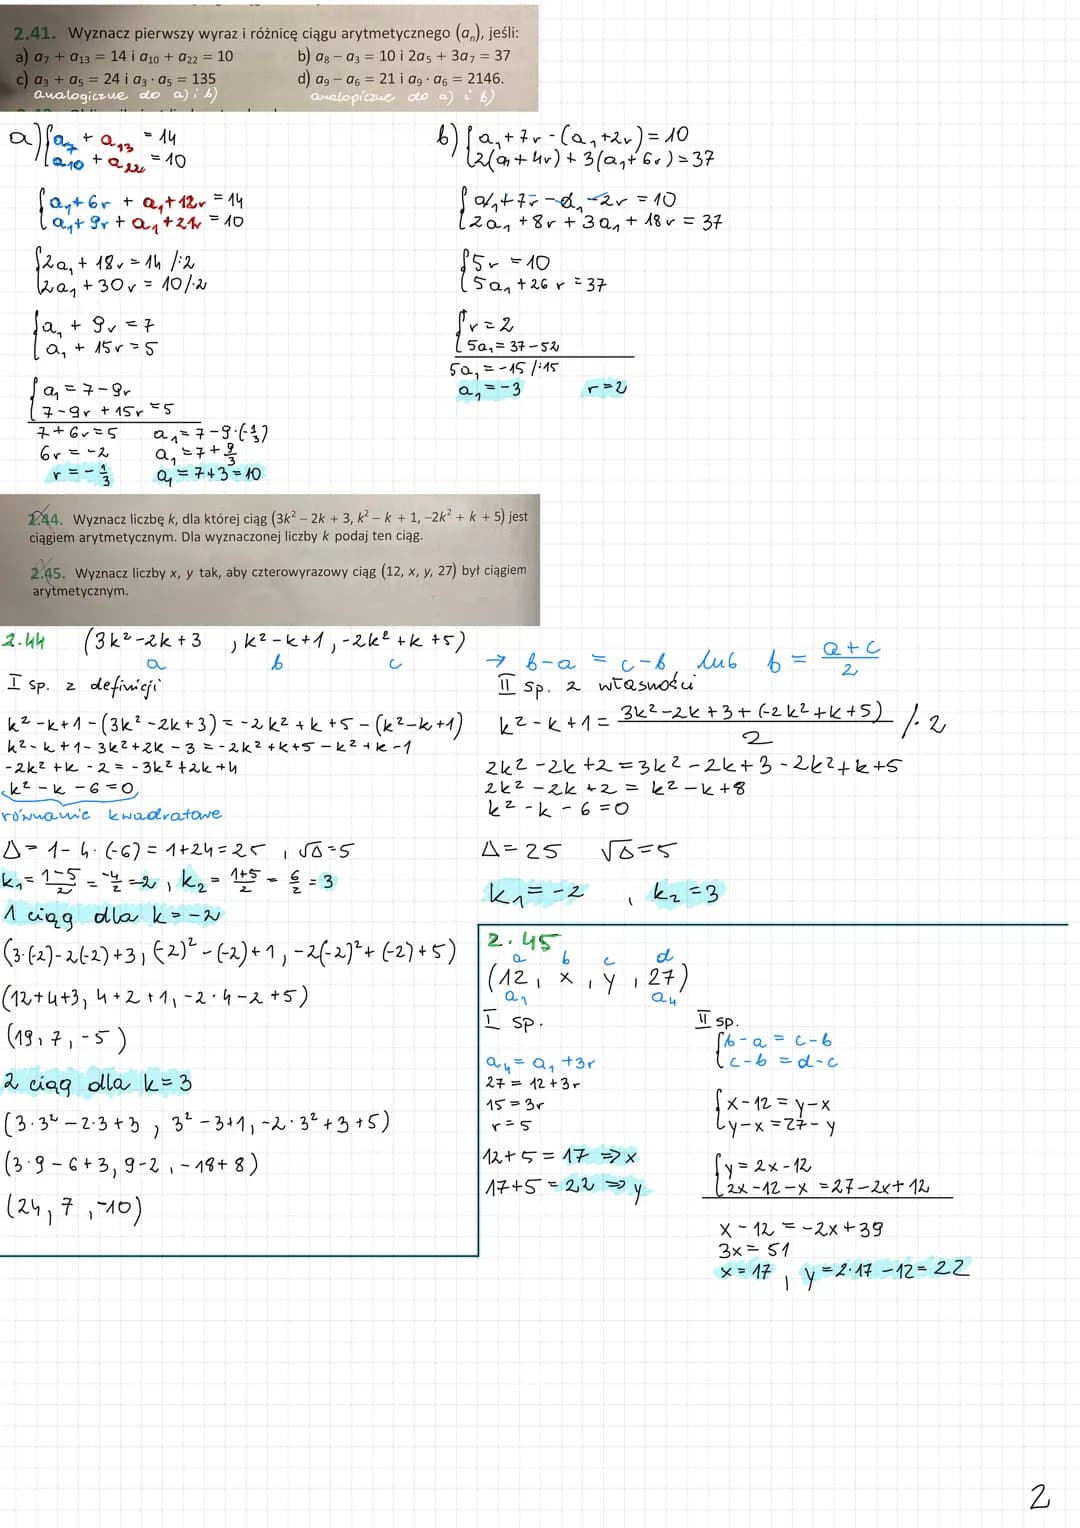 2.41. Wyznacz pierwszy wyraz i różnicę ciągu arytmetycznego (aₙ), jeśli:
a) a₇ + a₁₃ = 14 i a₁₀ + a₂₂ = 10
b) a₈ – a₃ = 10 i 2a₅ + 3a₇ = 37
c) a₃ + a₅ = 24 i a₃ · a₅ = 135
d) a₉ – a₆ = 21 i a₉ · a₆ = 2146.
analogiczne do a) i b)
analogiczne do a) i b)
a) { a₇ + a₁₃ = 14
a₁₀ + a₂₂ = 10
{ a₁+6r + a₁+12r = 14
a₁+9r + a₁+21r = 10
{ 2a₁ + 18r = 14 /:2
2a₁ + 30r = 10 /:2
{ a₁ + 9r = 7
a₁ + 15r = 5
{ a₁ = 7-9r
7-9r + 15r = 5
7+6r = 5
6r = -2
r = -1/3
a₁ = 7-9·(-1/3)
a₁ = 7+9/3
a₁ = 7+3 = 10
b) { a₁+7r-(a₁+2r) = 10
2(a₁+4r) + 3(a₁+6r) = 37
{ a₁+7r-a₁-2r = 10
2a₁ + 8r + 3a₁ + 18r = 37
{ 5r = 10
5a₁ + 26r = 37
{ r = 2
5a₁ = 37-52
5a₁ = -15 /:15
a₁ = -3 r = 2
2.44. Wyznacz liczbę k, dla której ciąg (3k² – 2k + 3, k² – k + 1, –2k² + k + 5) jest
ciągiem arytmetycznym. Dla wyznaczonej liczby k podaj ten ciąg.
2.45. Wyznacz liczby x, y tak, aby czterowyrazowy ciąg (12, x, y, 27) był ciągiem
arytmetycznym.
2.44 (3k²-2k+3, k²-k+1, -2k²+k+5)
a b c
→ b-a = c-b lub b = (a+c)/2
I sp. z definicji
k²-k+1-(3k²-2k+3) = -2k²+k+5-(k²-k+1)
k²-k+1-3k²+2k-3 = -2k²+k+5-k²+k-1
-2k²+k-2 = -3k²+2k+4
k²-k-6=0
równanie kwadratowe
Δ = 1-4·(-6) = 1+24 = 25, √Δ=5
k₁ = (1-5)/2 = -4/2 = -2, k₂ = (1+5)/2 = 6/2 = 3
II sp. z własności
k²-k+1 = (3k²-2k+3+(-2k²+k+5))/2 /·2
2k²-2k+2 = 3k²-2k+3-2k²+k+5
2k²-2k+2 = k²-k+8
k²-k-6=0
Δ=25 √Δ=5
k₁=-2, k₂=3
1 ciąg dla k=-2
(3·(-2)-2(-2)+3, (-2)²-(-2)+1, -2(-2)²+(-2)+5)
(12+4+3, 4+2+1, -2·4-2+5)
(19, 7, -5)
2 ciąg dla k=3
(3·3²-2·3+3, 3²-3+1, -2·3²+3+5)
(3·9-6+3, 9-2, -18+8)
(24, 7, -10)
2.45
a b c d
(12, x, y, 27)
a₁ a₄
I sp.
a₄ = a₁+3r
27 = 12+3r
15 = 3r
r = 5
12+5 = 17 ⇒ x
17+5 = 22 ⇒ y
II sp.
{ b-a = c-b
c-b = d-c
{ x-12 = y-x
y-x = 27-y
{ y = 2x-12
2x-12-x = 27-2x+12
x-12 = -2x+39
3x = 51
x = 17, y = 2·17-12 = 22
2